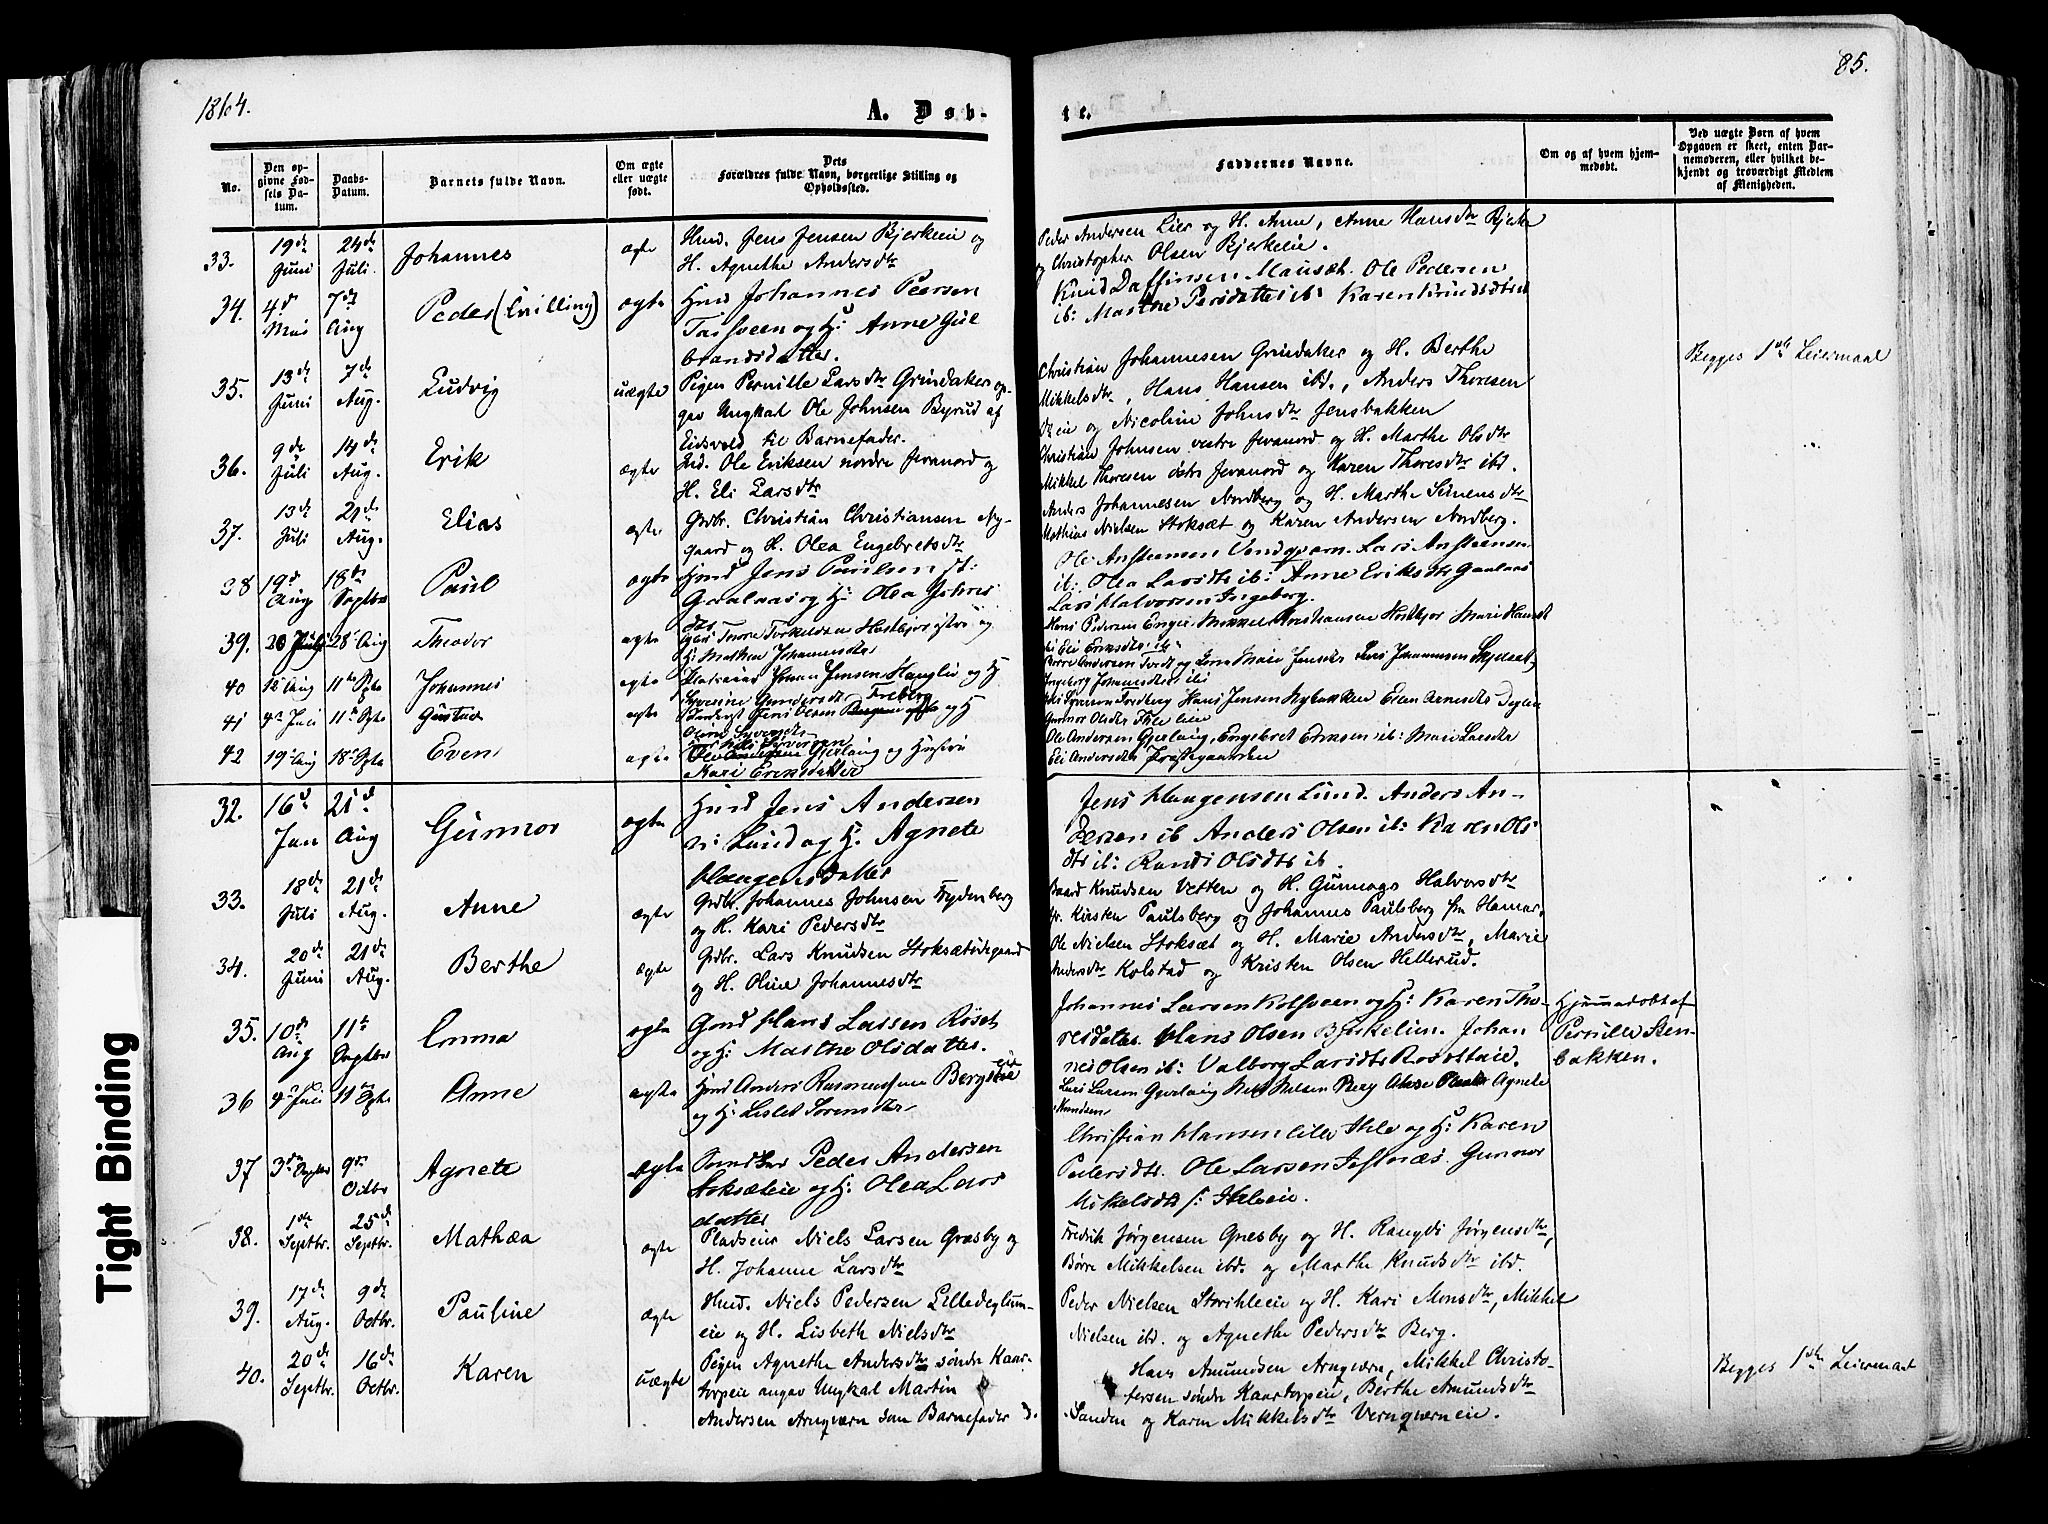 1864.
A. Døb-
te.
85.
No.
Den opgivne Fødsels Datum.
Daabs-Datum.
Barnets fulde Navn.
Om ægte eller uægte født.
Dets Forældres fulde Navn, borgerlige Stilling og Opholdssted.
Faddernes Navne.
Om og af hvem hjemmedøbt.
Ved uægte Børn af hvem Opgaven er skeet, enten Barnemoderen, eller hvilket bekjendt og troværdigt Medlem af Menigheden.
33. 19de Juni 24de Juli Johannes ægte Hmd. Jens Jensen Bjerkeie og
H. Agnethe Andersdtr
Peder Andersen Lier og H. Anne, Anne Hansdtr Bjerke
og Christopher Olsen Bjerkeie.
34. 4d Mai 7de Aug Peder (Tvilling) ægte Hmd Johannes Peersen
og H: Anne Gul
brandsdatter.
Ole Pedersen
ib: Marthe Persdatter ib:
35. 13de Juni 7de Aug. Ludvig uægte Pigen Pernille Larsdtr Grindaker op-
gav Ungkal Ole Johnsen Byrud af
Eidsvold til Barnefader.
Christian Johannesen Grindaker og H. Berthe
Mikkelsdtr, Hans Hansen ibd., Anders Thoresen
og Nicoline Johnsdtr Jensbakken
Begges 1ste Leiermaal
36. 9de Juli 14de Aug. Erik ægte Ind. Ole Eriksen nordre Jevanord og
H. Eli Larsdtr
Christian Johnsen vestre Jevanord og H. Marthe Olsdtr
Mikkel Thoresen østre Jevanord og Karen Thoresdtr ibd.
37. 13de Juli 21de Aug. Elias ægte Grdbr. Christian Christiansen Ny-
gaard og H. Olea Engebretsdtr
Anders Johannesen Nordberg og H. Marthe Simensdtr
Mathias Nielsen Stoksæt og Karen Andersen Nordberg.
38 19d Aug 18de Septbr Paul ægte Hmd Jens Paulsen
Gaalaas og H: Olea Johns
dtr
Ole Ansteensen Lars Ansteensen
ib: Olea Larsdtr ib: Anne Eriksdtr Gaalaas
Lars Halvorsen Ingeberg.
39. 28 Juli 28 Aug Theodor ægte Thore Torkildsen og
H: Mathea Johannesdtr
Hans Pedersen Enger
Eli Eriksdtr ib:
40 12 Aug 11te Spbr Johannes ægte Johan Jensen og H
Ingeborg Johannesdtr ib:
41 4de Juli 11te Spbr Gustav ægte Jens Olsen Freberg og H
Hans Jensen Nybakken
Gunnor Olsdtr Ihle
42 19 Aug 18 Spbr Even ægte Gjerlaug og Hustru
Kari Eriksdatter
Ole Andersen Gjerlaug, Engebret Eriksen ib: Mari Larsdtr
Eli Andersdtr Præstegaarden
32. 16d Jan 21d Aug Gunnor ægte Hmd Jens Andersen
v: Lund og H: Agnete
Haagensdatter
Jens Haagensen Lund. Anders An-
dersen ib Anders Olsen ib: Karen Ols
dtr ib: Randi Olsdtr ib.
33. 18de Juli 21de Aug. Anne ægte Grdbr. Johannes Johnsen Frydenberg
og H. Kari Pedersdtr
Baard Knudsen Vetten og H. Gunnor Halvorsdtr
Fr. Kirsten Paulsberg og Johannes Paulsberg fra Hamar.
34. 20de Juni 21de Aug. Berthe ægte Grdbr. Lars Knudsen Stoksætødegaard
og H. Oline Johannesdtr
Ole Nielsen Stoksæt og H. Marie Andersdtr, Marie
Andersdtr Kolstad og Kristen Olsen Hellerud.
35. 10de Aug 11te Septbr Emma ægte Gmd Hans Larsen Røset
og H: Marthe Olsdatter.
Johannes Larsen Kolsveen og H: Karen Tho-
resdatter Hans Olsen Bjerkelien. Johan
nes Olsen ib: Valborg Larsdtr Rosetteie.
Hjemmedøbt af
Pernille Sten-
bakken.
36 4de Juli 11te Spbr Anne ægte Hmd Anders Rasmussen Bergseie
og H: Lisbet Sørensdtr
Lars Larsen Gjerlaug Nils Nielsen Berg Agnete
Knudsen
37 3de Septbr 9de Octbr Agnete ægte Peder Andersen
Stoksæteie og H: Olea Lars
datter
Christian Hansen lille Ihle og H: Karen
Pedersdtr. Ole Larsen Gunnor
Mikelsdtr Ihleeie.
38. 1ste Septbr. 25de Septbr. Mathæa ægte Pladseier Niels Larsen Græsby og
H. Johanne Larsdtr
Fredrik Jørgensen Græsby og H. Rangdi Jørgensdtr,
Børre Mikkelsen ibd. og Marthe Knudsdtr ibd.
39. 17de Aug. 9de Octbr. Pauline ægte Hmd. Niels Pedersen Lilledeglum-
eie og H. Lisbeth Nielsdtr
Peder Nielsen Storihleeie og H. Kari Monsdtr, Mikkel
Nielsen ibd. og Agnethe Pedersdtr Berg.
40. 20de Septbr. 16de Octbr. Karen uægte Pigen Agnethe Andersdtr søndre Kaar-
torpeie angav Ungkal Martin
Andersen Arnqværn som Barnefader
Hans Amundsen Arnqværn, Mikkel Christo-
fersen søndre Kaartorpeie, Berthe Amundsdtr
Sanden og Karen Mikkelsdtr Vernqværneie.
Begges 1ste Leiermaal
Tight Binding